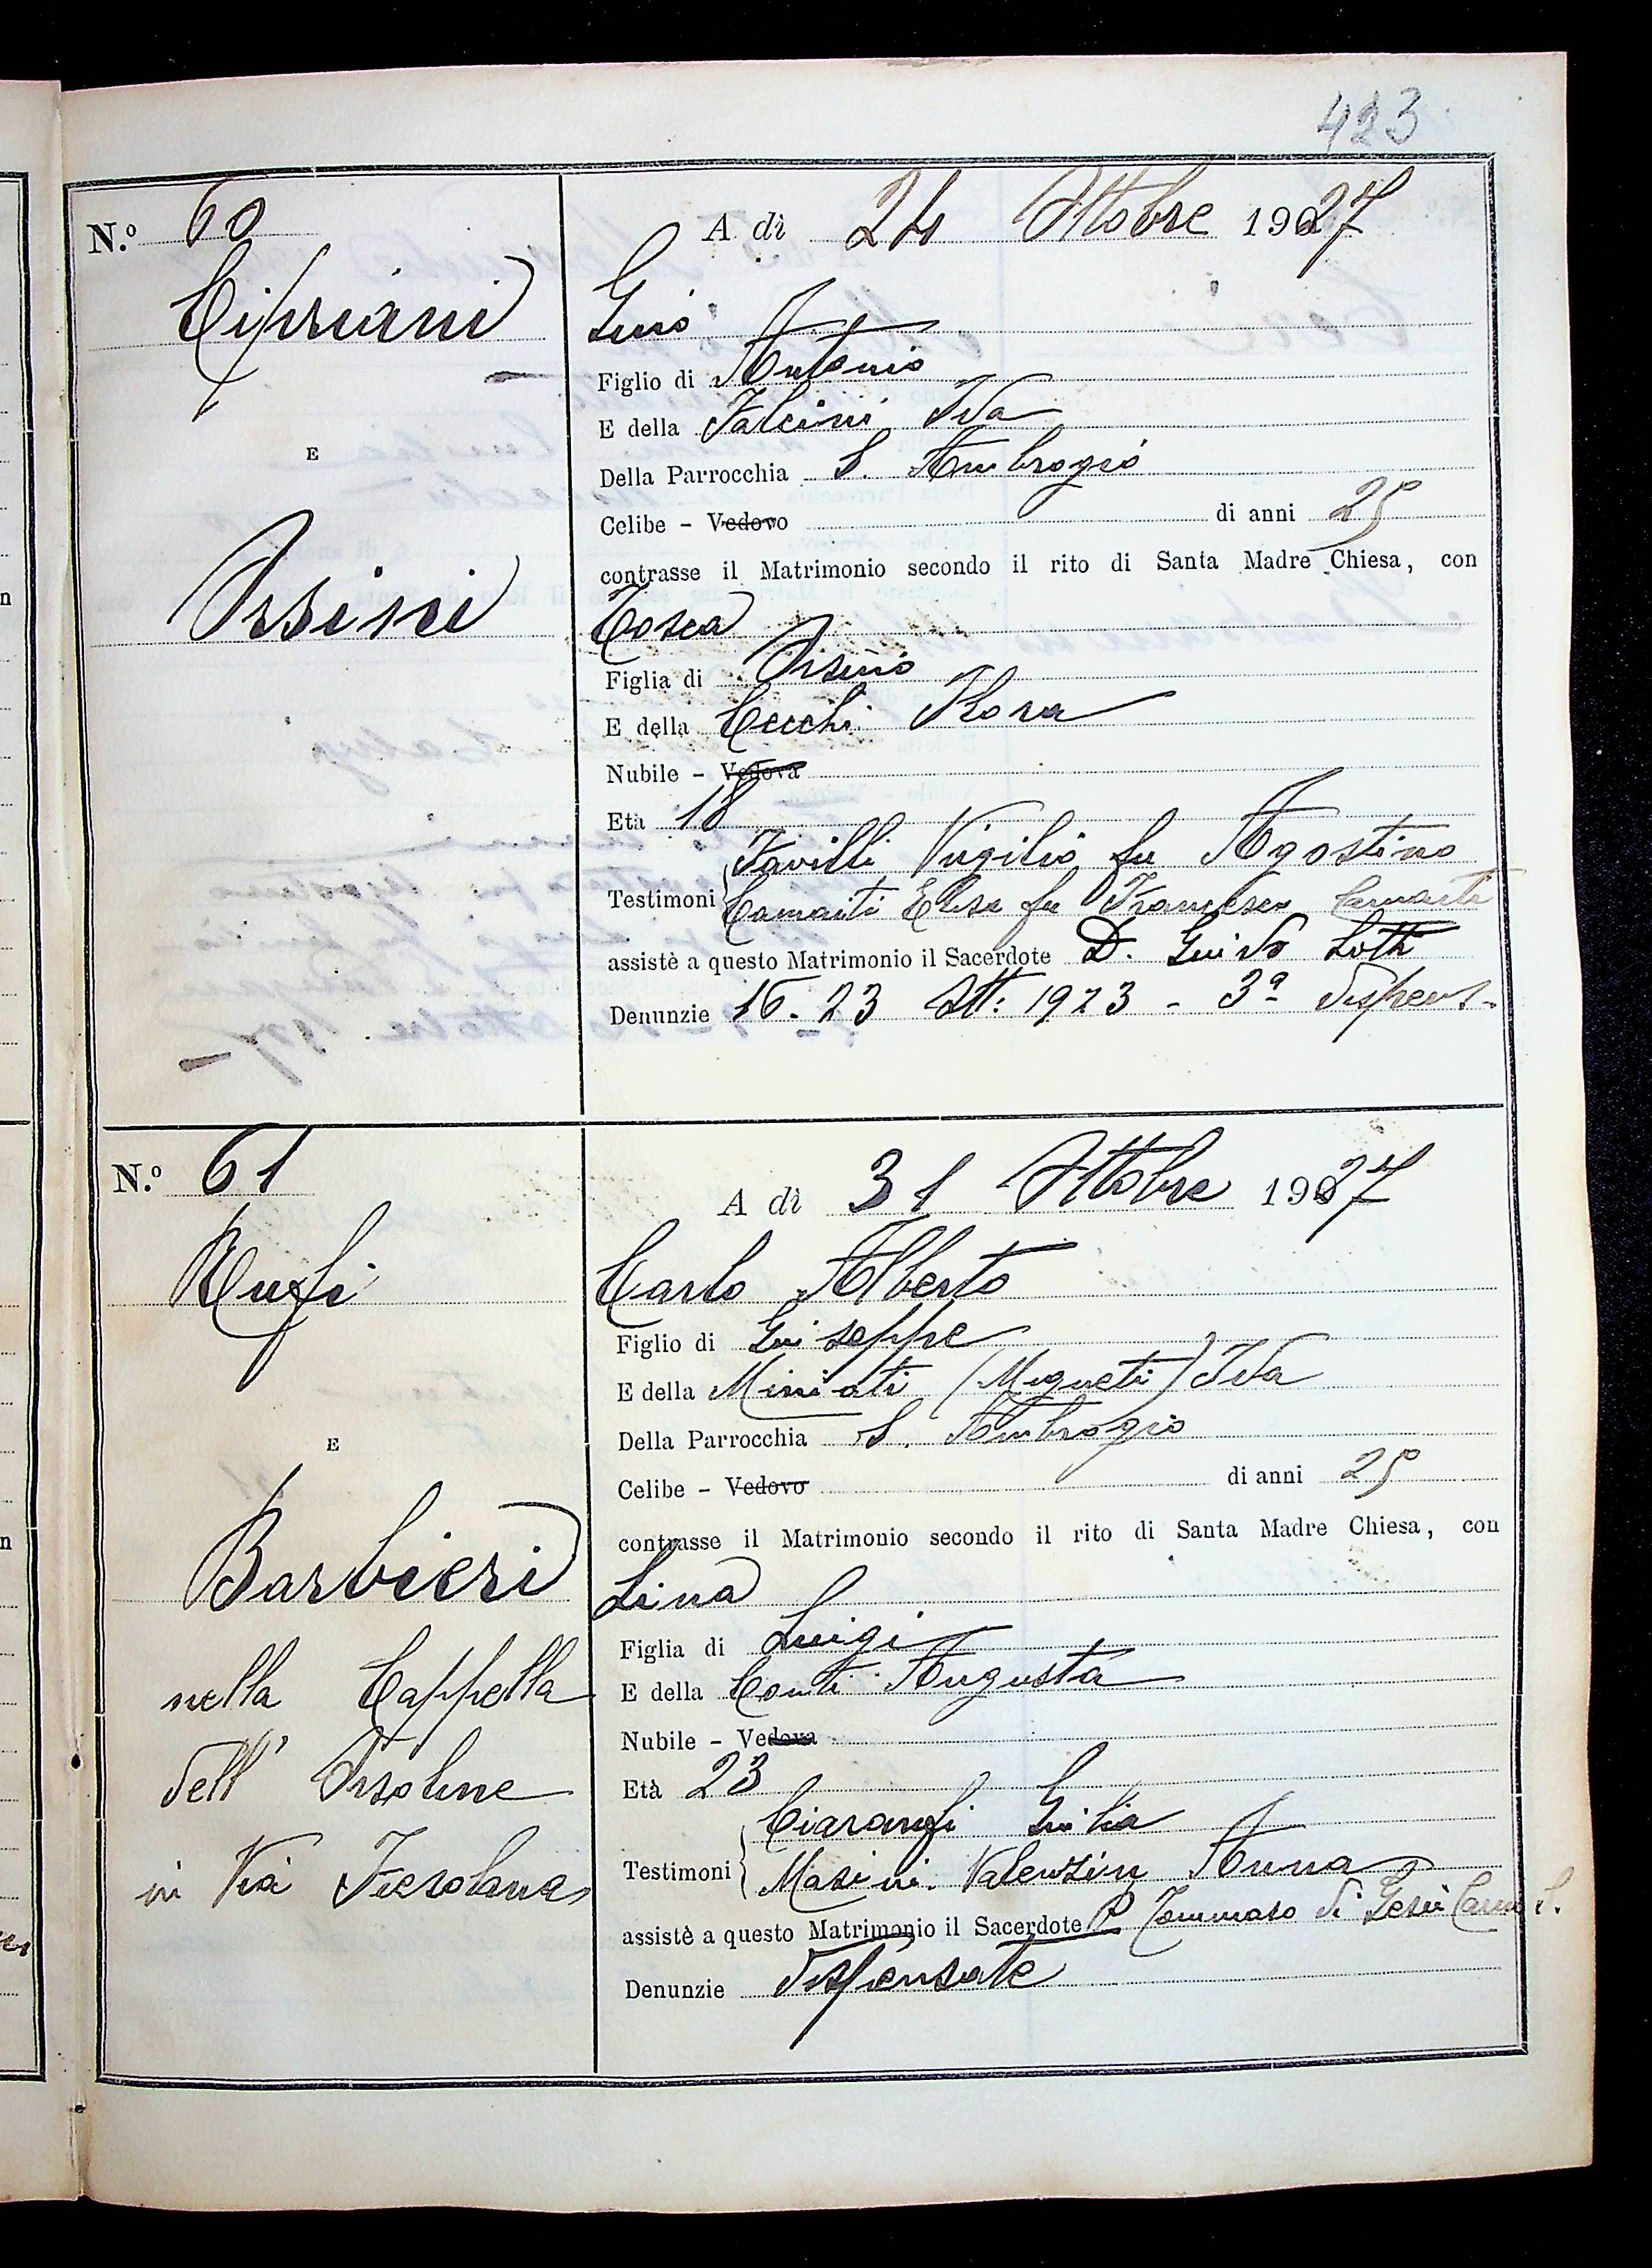 423
N.º 60
A dì 24 Ottobre 1927
Cipriani
Gino
Figlio di Antonio
E della Falcini Ida
E
Della Parrocchia S. Ambrogio
Celibe - Vedovo di anni 25
contrasse il Matrimonio secondo il rito di Santa Madre Chiesa, con
Orsini
Tosca
Figlia di Orsino
E della Cecchi Flora
Nubile - Vedova
Età 18
Favilli Virgilio fu Agostino
Testimoni Camaiti Elisa fu Francesco Camaiti
assistè a questo Matrimonio il Sacerdote D. Guido Lotti
Denunzie 16. 23 Ott: 1923 - 3ª dispens.
N.º 61
A dì 31 Ottobre 1927
Carlo Alberto
Figlio di Giuseppe
E della Miniati Ida
Della Parrocchia S. Ambrogio
E
Celibe - Vedovo di anni 25
contrasse il Matrimonio secondo il rito di Santa Madre Chiesa, con
Barbieri
Lina
Figlia di Luigi
E della Conti Augusta
nella Cappella
Nubile - Vedova
dell' Orsoline
Età 23
Ciaranfi Giulia
in Via Fiesolana
Testimoni Masini Valentini Anna
assistè a questo Matrimonio il Sacerdote P. Tommaso di Gesù Carm.
Denunzie dispensate